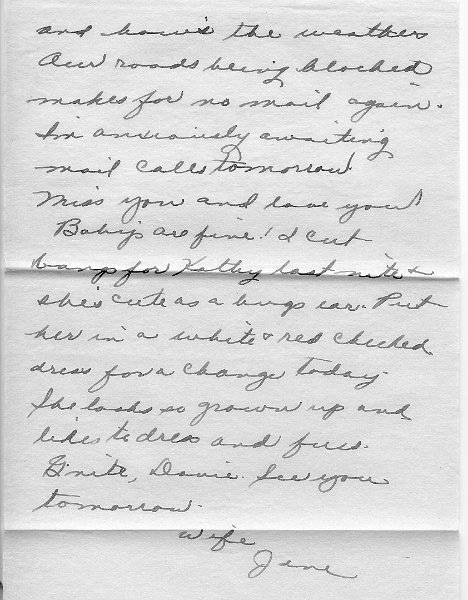 and how's the weather
Our roads being blocked
makes for no mail again.
Im anxiously awaiting
mail calls tomorrow!
Miss you and love you!
Babys are fine! I cut
bangs for Kathy last nite &
she's cute as a bugs ear. Put
her in a white & red checked
dress for a change today.
She looks so grown up and
likes to dress and fuss.
G'nite, Davie. See you
tomorrow.
wife
Jene